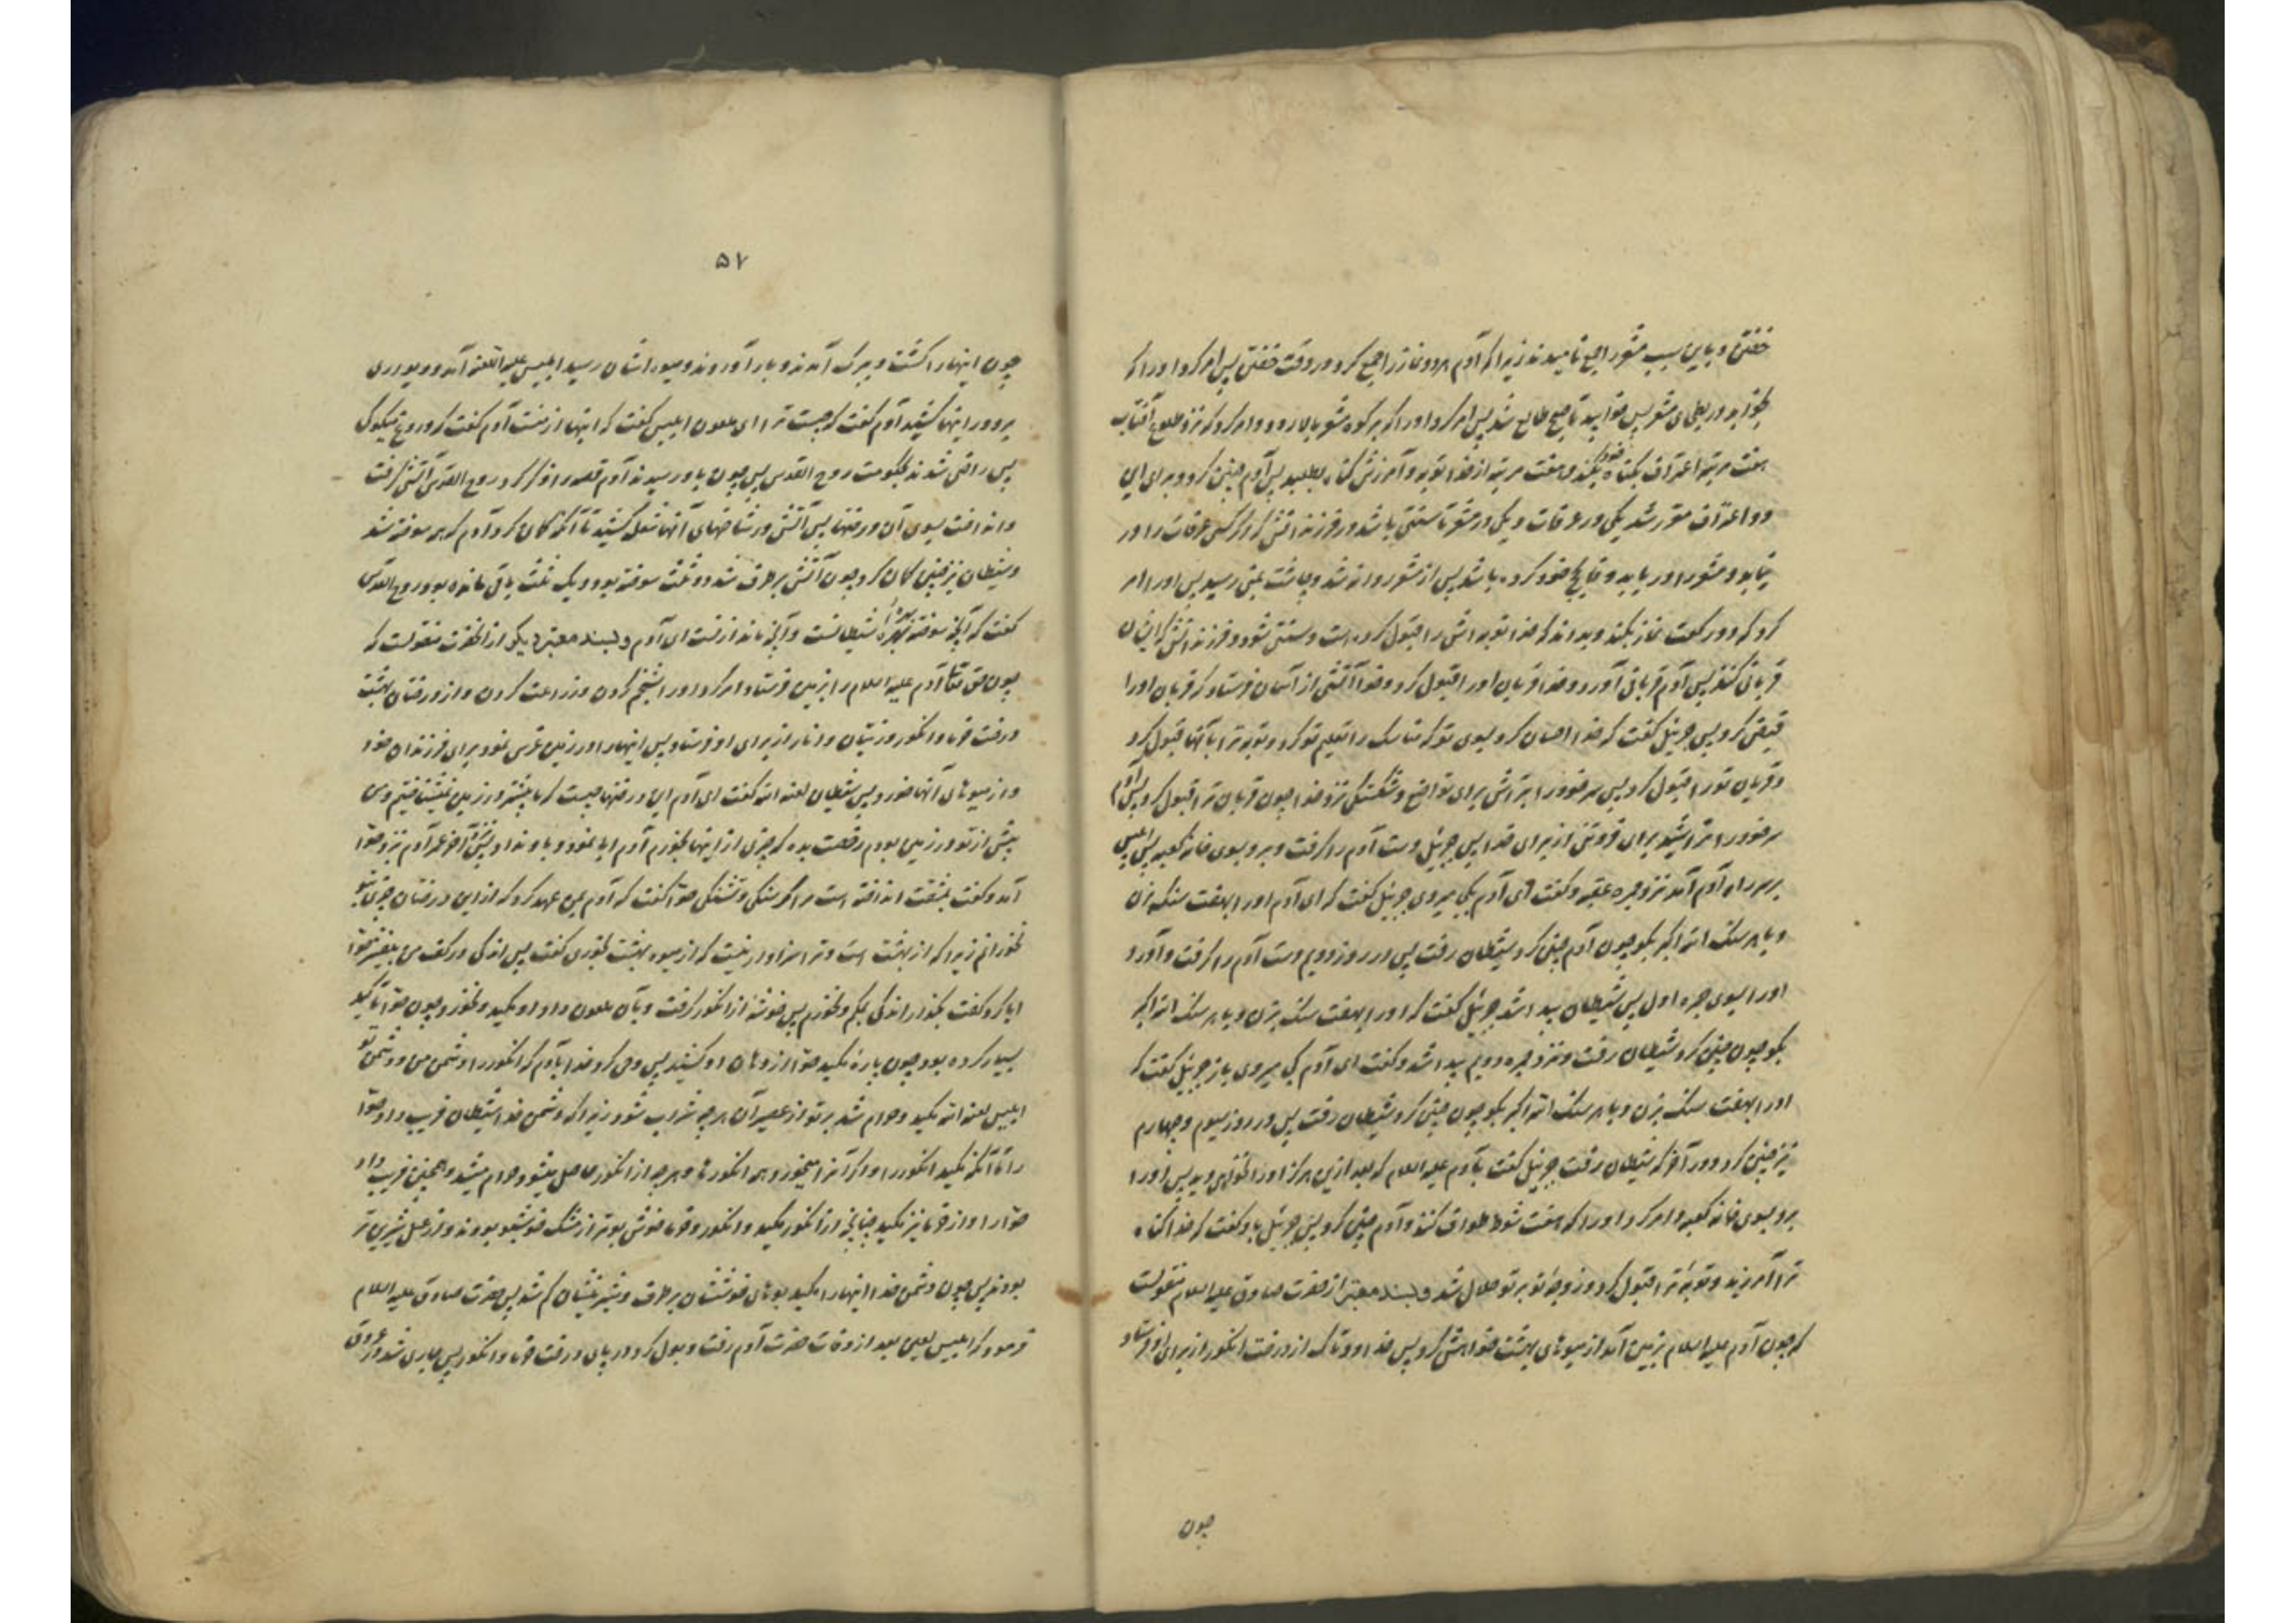 خفتن و باین سبب مشعر را جمع نامیدند زیرا که آدم هر دو نماز را جمع کرد در وقت خفتن پس امر کرد او را که
بخوابد در بطحای مشعر پس خوابید تا صبح طالع شد پس امر کرد او را که بر کوه مشعر بالا رود و امر کرد که نزد طلوع آفتاب
هفت مرتبه اعتراف بگناه خود بکند و هفت مرتبه از خدا توبه و آمرزش گناه بطلبد پس آدم چنین کرد و برای این
دو اعتراف مقرر شد یکی در عرفات و یکی در مشعر تا سنتی باشد در فرزندانش که هر کس عرفات را در
نیابد و مشعر را دریابد وفا بحج خود کرده باشد پس از مشعر روانه شد و چاشت بمنی رسید پس او را امر
کرد که دو رکعت نماز بکند و بداند که خدا توبه اش را قبول کرده است و سنتی شود در فرزندانش که ایشان
قربانی کنند پس آدم قربانی آورد و خدا قربان او را قبول کرد و خدا آتشی از آسمان فرستاد که قربان او را
قبض کرد پس جبرئیل گفت که خدا احسان کرد بسوی تو که مناسک را تعلیم تو کرد و توبه ترا بآنها قبول کرد
و قربان تو را قبول کرد پس سر خود را بتراش برای تواضع و شکستگی نزد خدا چون قربان ترا قبول کرد پس آدم
سر خود را تراشید برای فروتنی از برای خدا پس جبرئیل دست آدم را گرفت و برد بسوی خانه کعبه پس ابلیس
بر سر راه آدم آمد نزد جمره عقبه و گفت ای آدم بکجا میروی جبرئیل گفت که ای آدم او را بهفت سنگ بزن
و با هر سنگ الله اکبر بگو چون آدم چنین کرد شیطان رفت پس در روز دویم دست آدم را گرفت و آورد
او را بسوی جمره اول پس شیطان پیدا شد جبرئیل گفت که او را بهفت سنگ بزن و با هر سنگ الله اکبر
بگو چون چنین کرد شیطان رفت و نزد جمره دویم پیدا شد و گفت ای آدم بکجا میروی باز جبرئیل گفت که
او را بهفت سنگ بزن و با هر سنگ الله اکبر بگو چون چنین کرد شیطان رفت پس در روز سیوم و چهارم
نیز چنین کرد و در آخر که شیطان رفت جبرئیل گفت بآدم علیه السلام که بعد ازین هرگز او را نخواهی دید پس او را
برد بسوی خانه کعبه و امر کرد او را که هفت شوط طواف کند و آدم چنین کرد پس جبرئیل باو گفت که خدا گناه
ترا آمرزید و توبه ترا قبول کرد و زوجه تو بر تو حلال شد و بسند معتبر از حضرت صادق علیه السلام منقولست
که چون آدم علیه السلام بزمین آمد از میوهای بهشت خواهش کرد پس خدا دو تاک از درخت انگور از برای او فرستاد
چون
۵۷
چون اینها را کشت و ببرگ آمدند و بار آوردند و میوه ایشان رسید ابلیس علیه اللعنه آمد و دیواری
بر دور اینها کشید آدم گفت که چیست ترا ای ملعون ابلیس گفت که اینها از منست آدم گفت که دروغ میگوئی
پس راضی شدند بحکومت روح القدس پس چون باو رسیدند آدم قصه را ذکر کرد روح القدس آتشی گرفت
و انداخت بسوی آن درختها پس آتش در شاخهای آنها شعله کشید تا آنکه گمان کرد آدم که همه سوخته شد
و شیطان نیز چنین گمان کرد چون آتش برطرف شد دو ثلث سوخته بود و یک ثلث باقی مانده بود روح القدس
گفت که آنچه سوخته بهره شیطانست و آنچه مانده از تست ای آدم و بسند معتبر دیگر از آنحضرت منقولست که
چون حق تعالی آدم علیه السلام را بزمین فرستاد امر کرد او را بشخم کردن و زراعت کردن و از درختان بهشت
درخت خرما و انگور و زیتان و انار از برای او فرستاد پس اینها را در زمین غرس نمود برای فرزندان خود
و از میوهای آنها خورد پس شیطان لعنه الله گفت ای آدم این درختها چیست که ما پیشتر در زمین نمیشناختیم و من
پیش از تو در زمین بودم رخصت بده که چیزی از اینها بخورم آدم ابا نمود و باو نداد پس در آخر عمر آدم نزد حوا
آمد و گفت بمشقت انداخته است مرا گرسنگی و تشنگی حوا گفت که آدم بمن عهد کرد که از این درختان چیزی بتو
نخورانم زیرا که از بهشت است و ترا سزاوار نیست که از میوه بهشت بخوری گفت پس اندکی در کف من بیفشر حوا
ابا کرد گفت بگذار اندکی بمکم و نخورم پس خوشه از انگور گرفت و بآن ملعون داد او مکید و نخورد چون حوا تاکید
بسیار کرده بود چون پاره مکید حوا از دهان او کشید پس وحی کرد خدا بآدم که انگور را دشمن من و دشمن تو
ابلیس لعنه الله مکید و حرام شد بر تو از عصیر آن هر چه شراب شود زیرا که دشمن خدا شیطان فریب داد حوا
را تا آنکه مکید انگور را و اگر آنرا میخورد همه انگورها و هر چه از انگور حاصل میشود حرام میشد و همچنین فریب داد
حوا را و از خرما نیز مکید چنانچه از انگور مکید و انگور و خرما خوش بوتر از مشک خوشبو بودند و از عسل شیرین تر
بودند پس چون دشمن خدا اینها را مکید بوهای خوششان برطرف و شیرینیشان کم شد پس حضرت صادق علیه السلام
فرمود که ابلیس لعین بعد از وفات حضرت آدم رفت و بول کرد در پای درخت خرما و انگور پس جاری شد در عروق